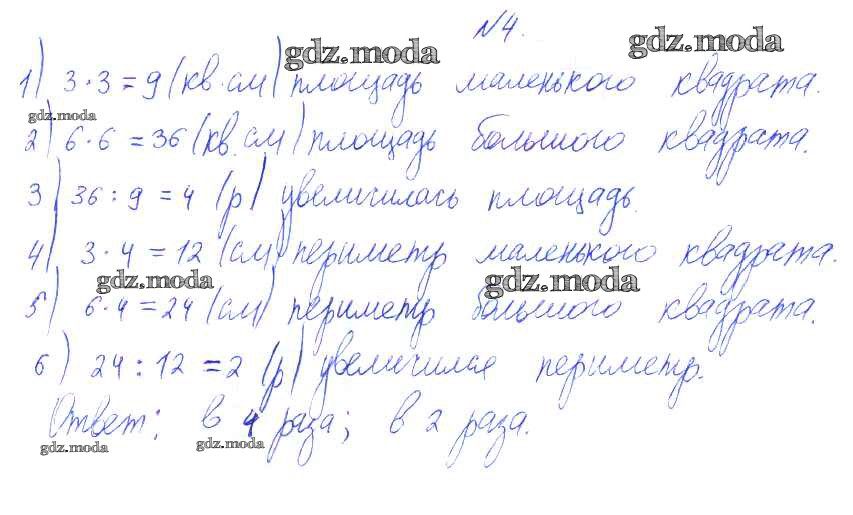 №4.
gdz.moda gdz.moda
1) 3·3=9 (кв.см) площадь маленького квадрата.
gdz.moda
2) 6·6=36 (кв.см) площадь большого квадрата.
3) 36:9=4 (р) увеличилась площадь.
4) 3·4=12 (см) периметр маленького квадрата.
gdz.moda gdz.moda
5) 6·4=24 (см) периметр большого квадрата.
6) 24:12=2 (р) увеличился периметр.
Ответ: в 4 раза; в 2 раза.
gdz.moda gdz.moda